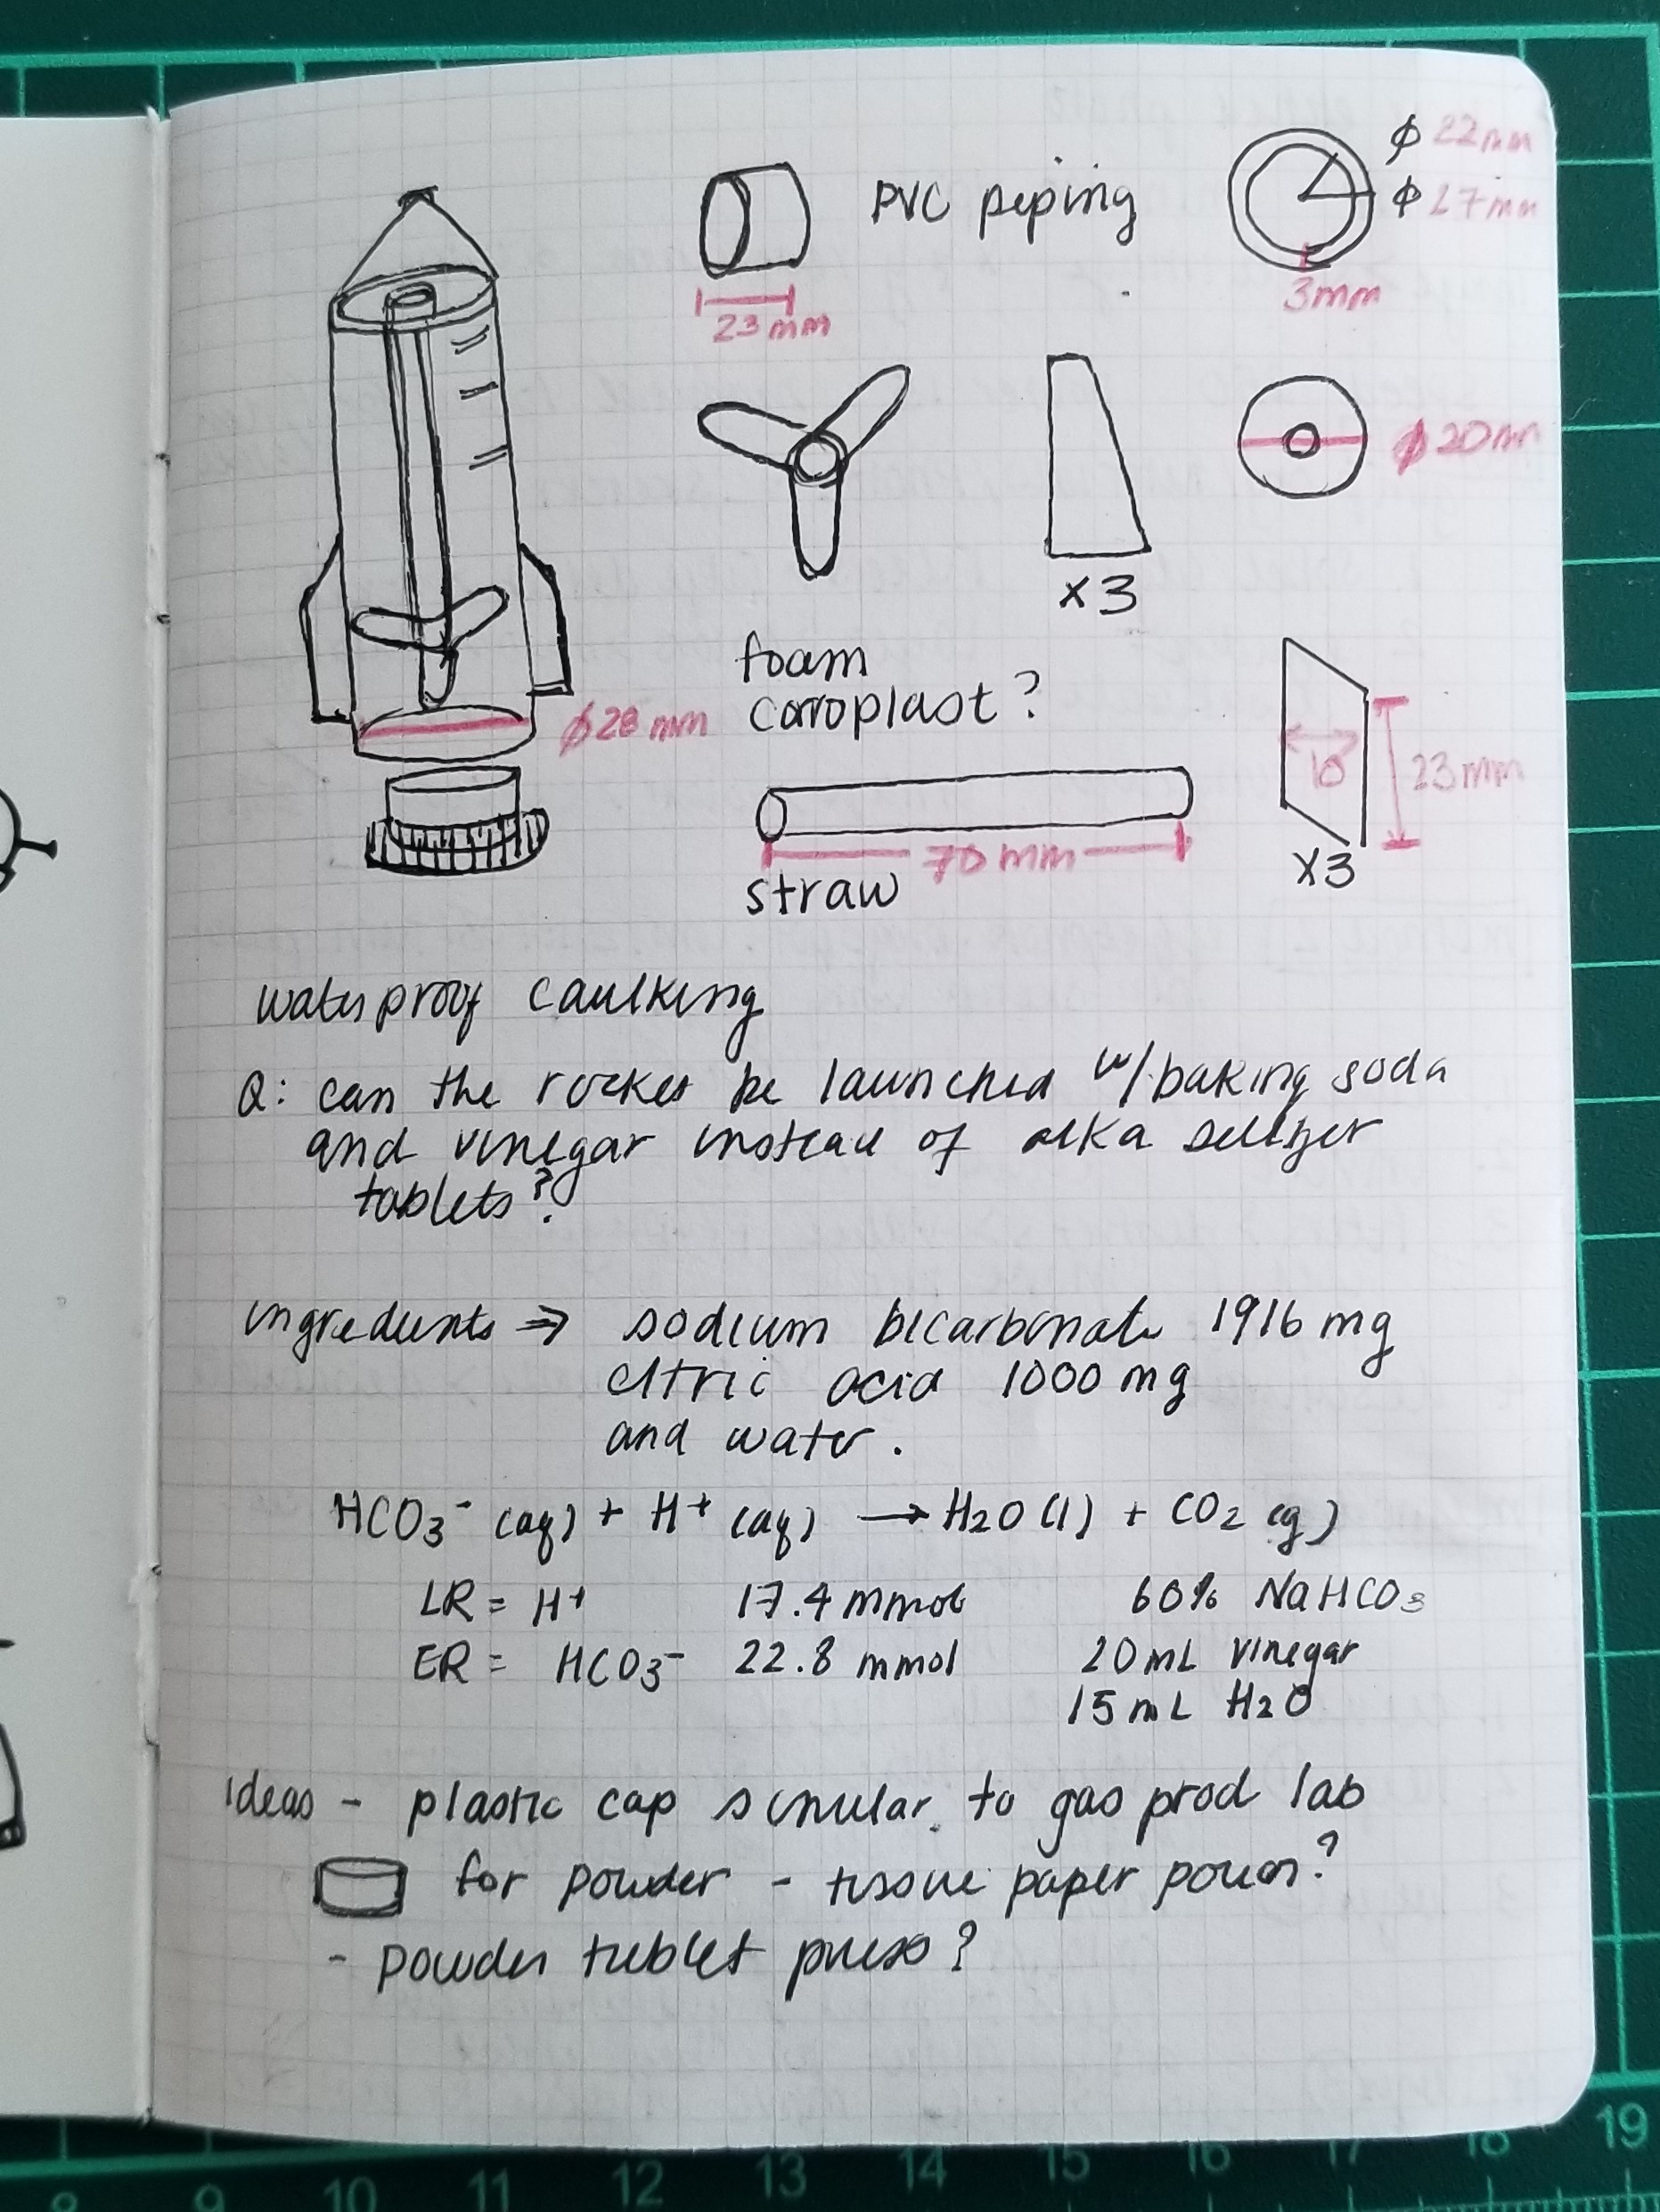 φ 22mm
PVC piping
φ 27mm
3mm
23 mm
φ 20mm
x3
foam
coroplast?
φ28 mm
10
23mm
70 mm
x3
straw
waterproof caulking
Q: can the rocket be launched w/baking soda
and vinegar instead of alka seltzer
tablets?
ingredients ⇒ sodium bicarbonate 1916 mg
citric acid 1000 mg
and water.
HCO3⁻ (aq) + H⁺ (aq) → H2O (l) + CO2 (g)
LR = H⁺ 17.4 mmol 60% NaHCO3
ER = HCO3⁻ 22.8 mmol 20 mL vinegar
15 mL H2O
ideas - plastic cap similar to gas prod lab
for powder - tissue paper pouch?
- powder tablet press?
8 9 10 11 12 13 14 15 16 17 18 19